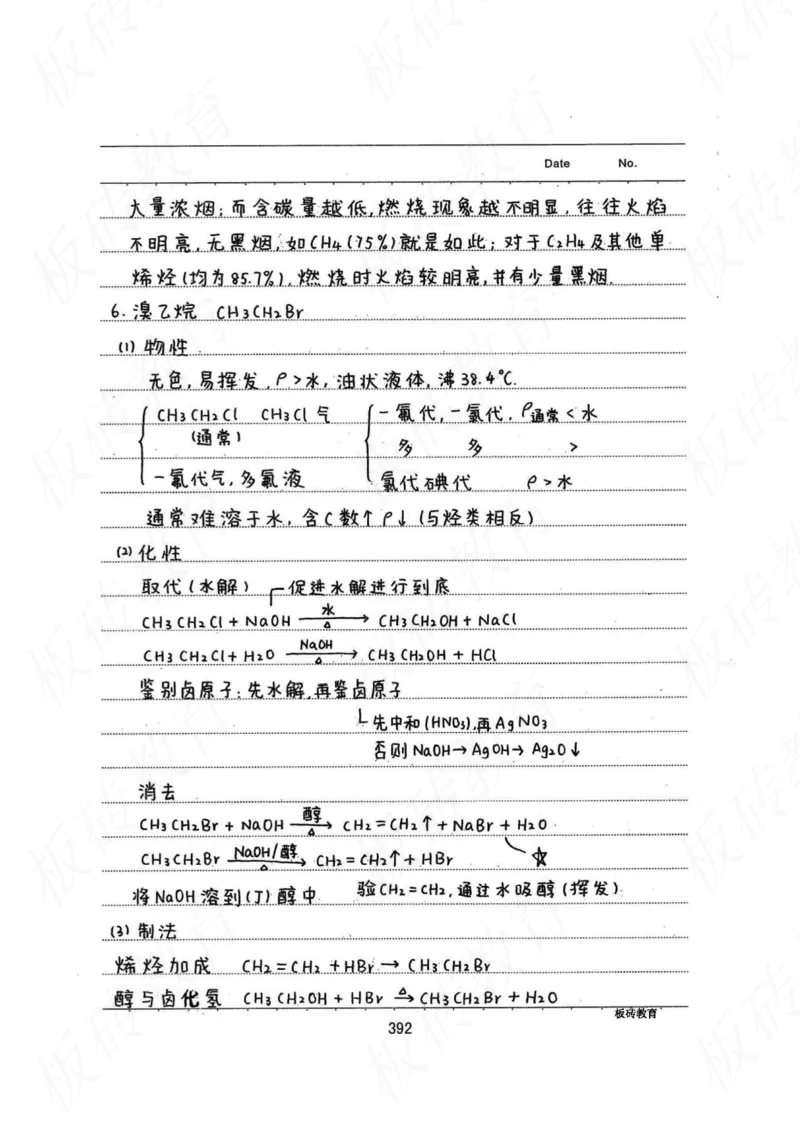 Date No.
大量浓烟；而含碳量越低,燃烧现象越不明显，往往火焰
不明亮,无黑烟,如CH₄(75%)就是如此；对于C₂H₄及其他单
烯烃(均为85.7%),燃烧时火焰较明亮,并有少量黑烟.
6.溴乙烷 CH₃CH₂Br
(1)物性
无色,易挥发,ρ>水,油状液体,沸38.4℃.
CH₃CH₂Cl CH₃Cl气
(通常)
一氟代气,多氟液
一氟代,一氯代,ρ通常<水
多 多 >
氯代碘代 ρ>水
通常难溶于水,含C数↑ρ↓(与烃类相反)
(2)化性
取代(水解) 促进水解进行到底
CH₃CH₂Cl + NaOH 水 △ → CH₃CH₂OH + NaCl
CH₃CH₂Cl + H₂O NaOH △ → CH₃CH₂OH + HCl
鉴别卤原子:先水解,再鉴卤原子
先中和(HNO₃),再AgNO₃
否则NaOH→AgOH→Ag₂O↓
消去
CH₃CH₂Br + NaOH 醇 △ → CH₂=CH₂↑ + NaBr + H₂O
CH₃CH₂Br NaOH/醇 △ → CH₂=CH₂↑ + HBr ☆
将NaOH溶到(J)醇中 验CH₂=CH₂,通过水吸醇(挥发)
(3)制法
烯烃加成 CH₂=CH₂ + HBr → CH₃CH₂Br
醇与卤化氢 CH₃CH₂OH + HBr △ → CH₃CH₂Br + H₂O
板砖教育
392